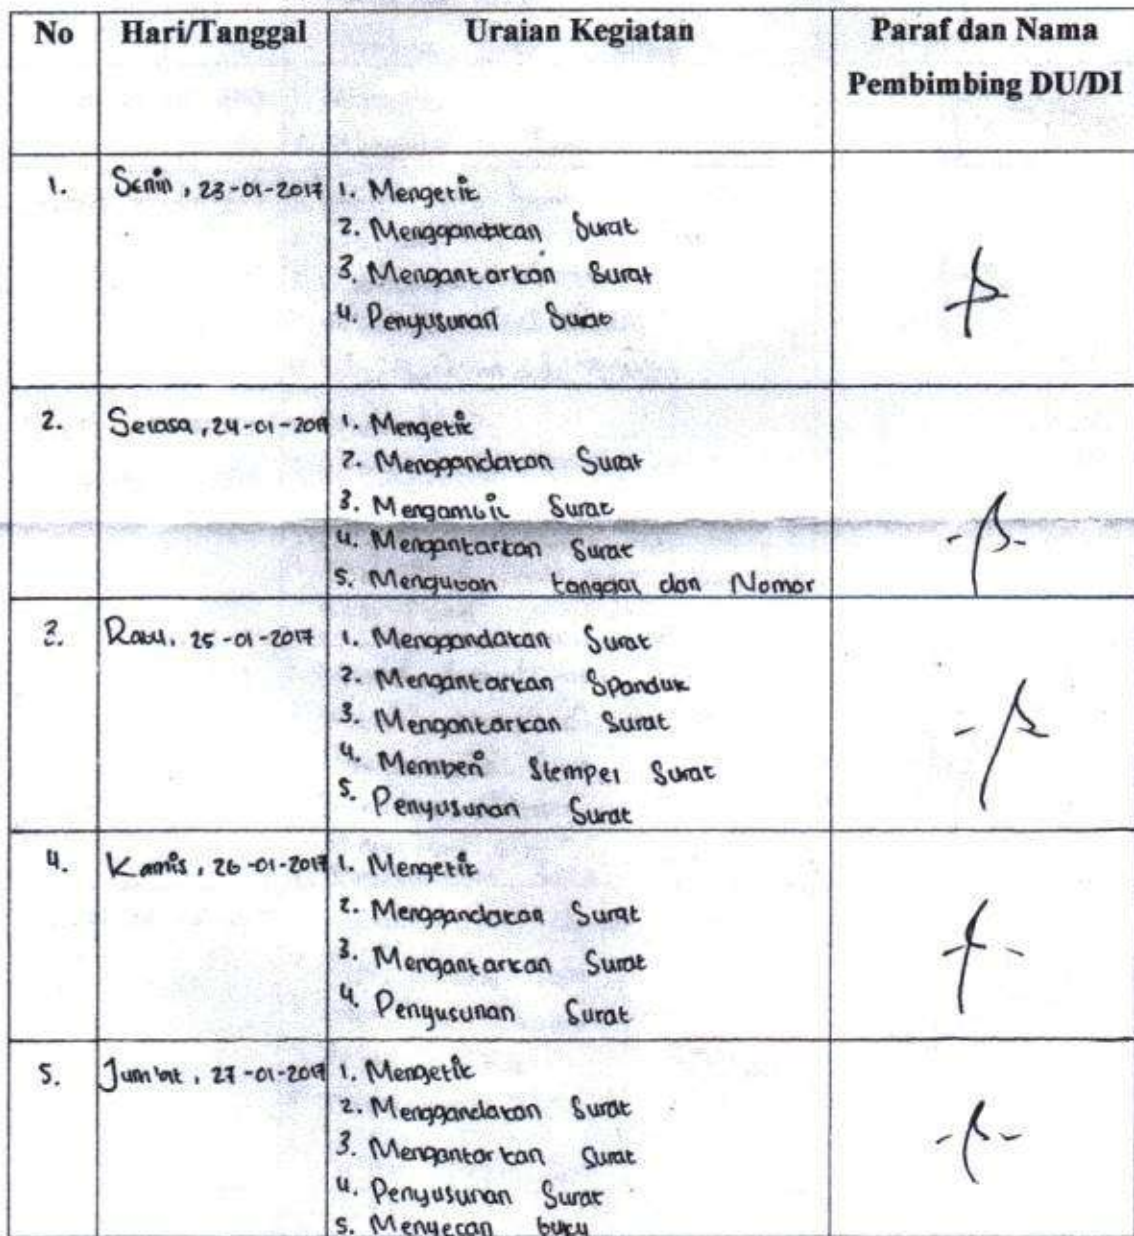 No Hari/Tanggal Uraian Kegiatan Paraf dan Nama
Pembimbing DU/DI
1. Senin, 23-01-2017 1. Mengetik
2. Menggandakan Surat
3. Mengantarkan Surat
4. Penyusunan Surat
2. Selasa, 24-01-2017 1. Mengetik
2. Menggandakan Surat
3. Mengambil Surat
4. Mengantarkan Surat
5. tanggal dan Nomor
3. Rabu, 25-01-2017 1. Menggandakan Surat
2. Mengantarkan Spanduk
3. Mengantarkan Surat
4. Memberi Stempel Surat
5. Penyusunan Surat
4. Kamis, 26-01-2017 1. Mengetik
2. Menggandakan Surat
3. Mengantarkan Surat
4. Penyusunan Surat
5. Jum'at, 27-01-2017 1. Mengetik
2. Menggandakan Surat
3. Mengantarkan Surat
4. Penyusunan Surat
5. Menyecan buku